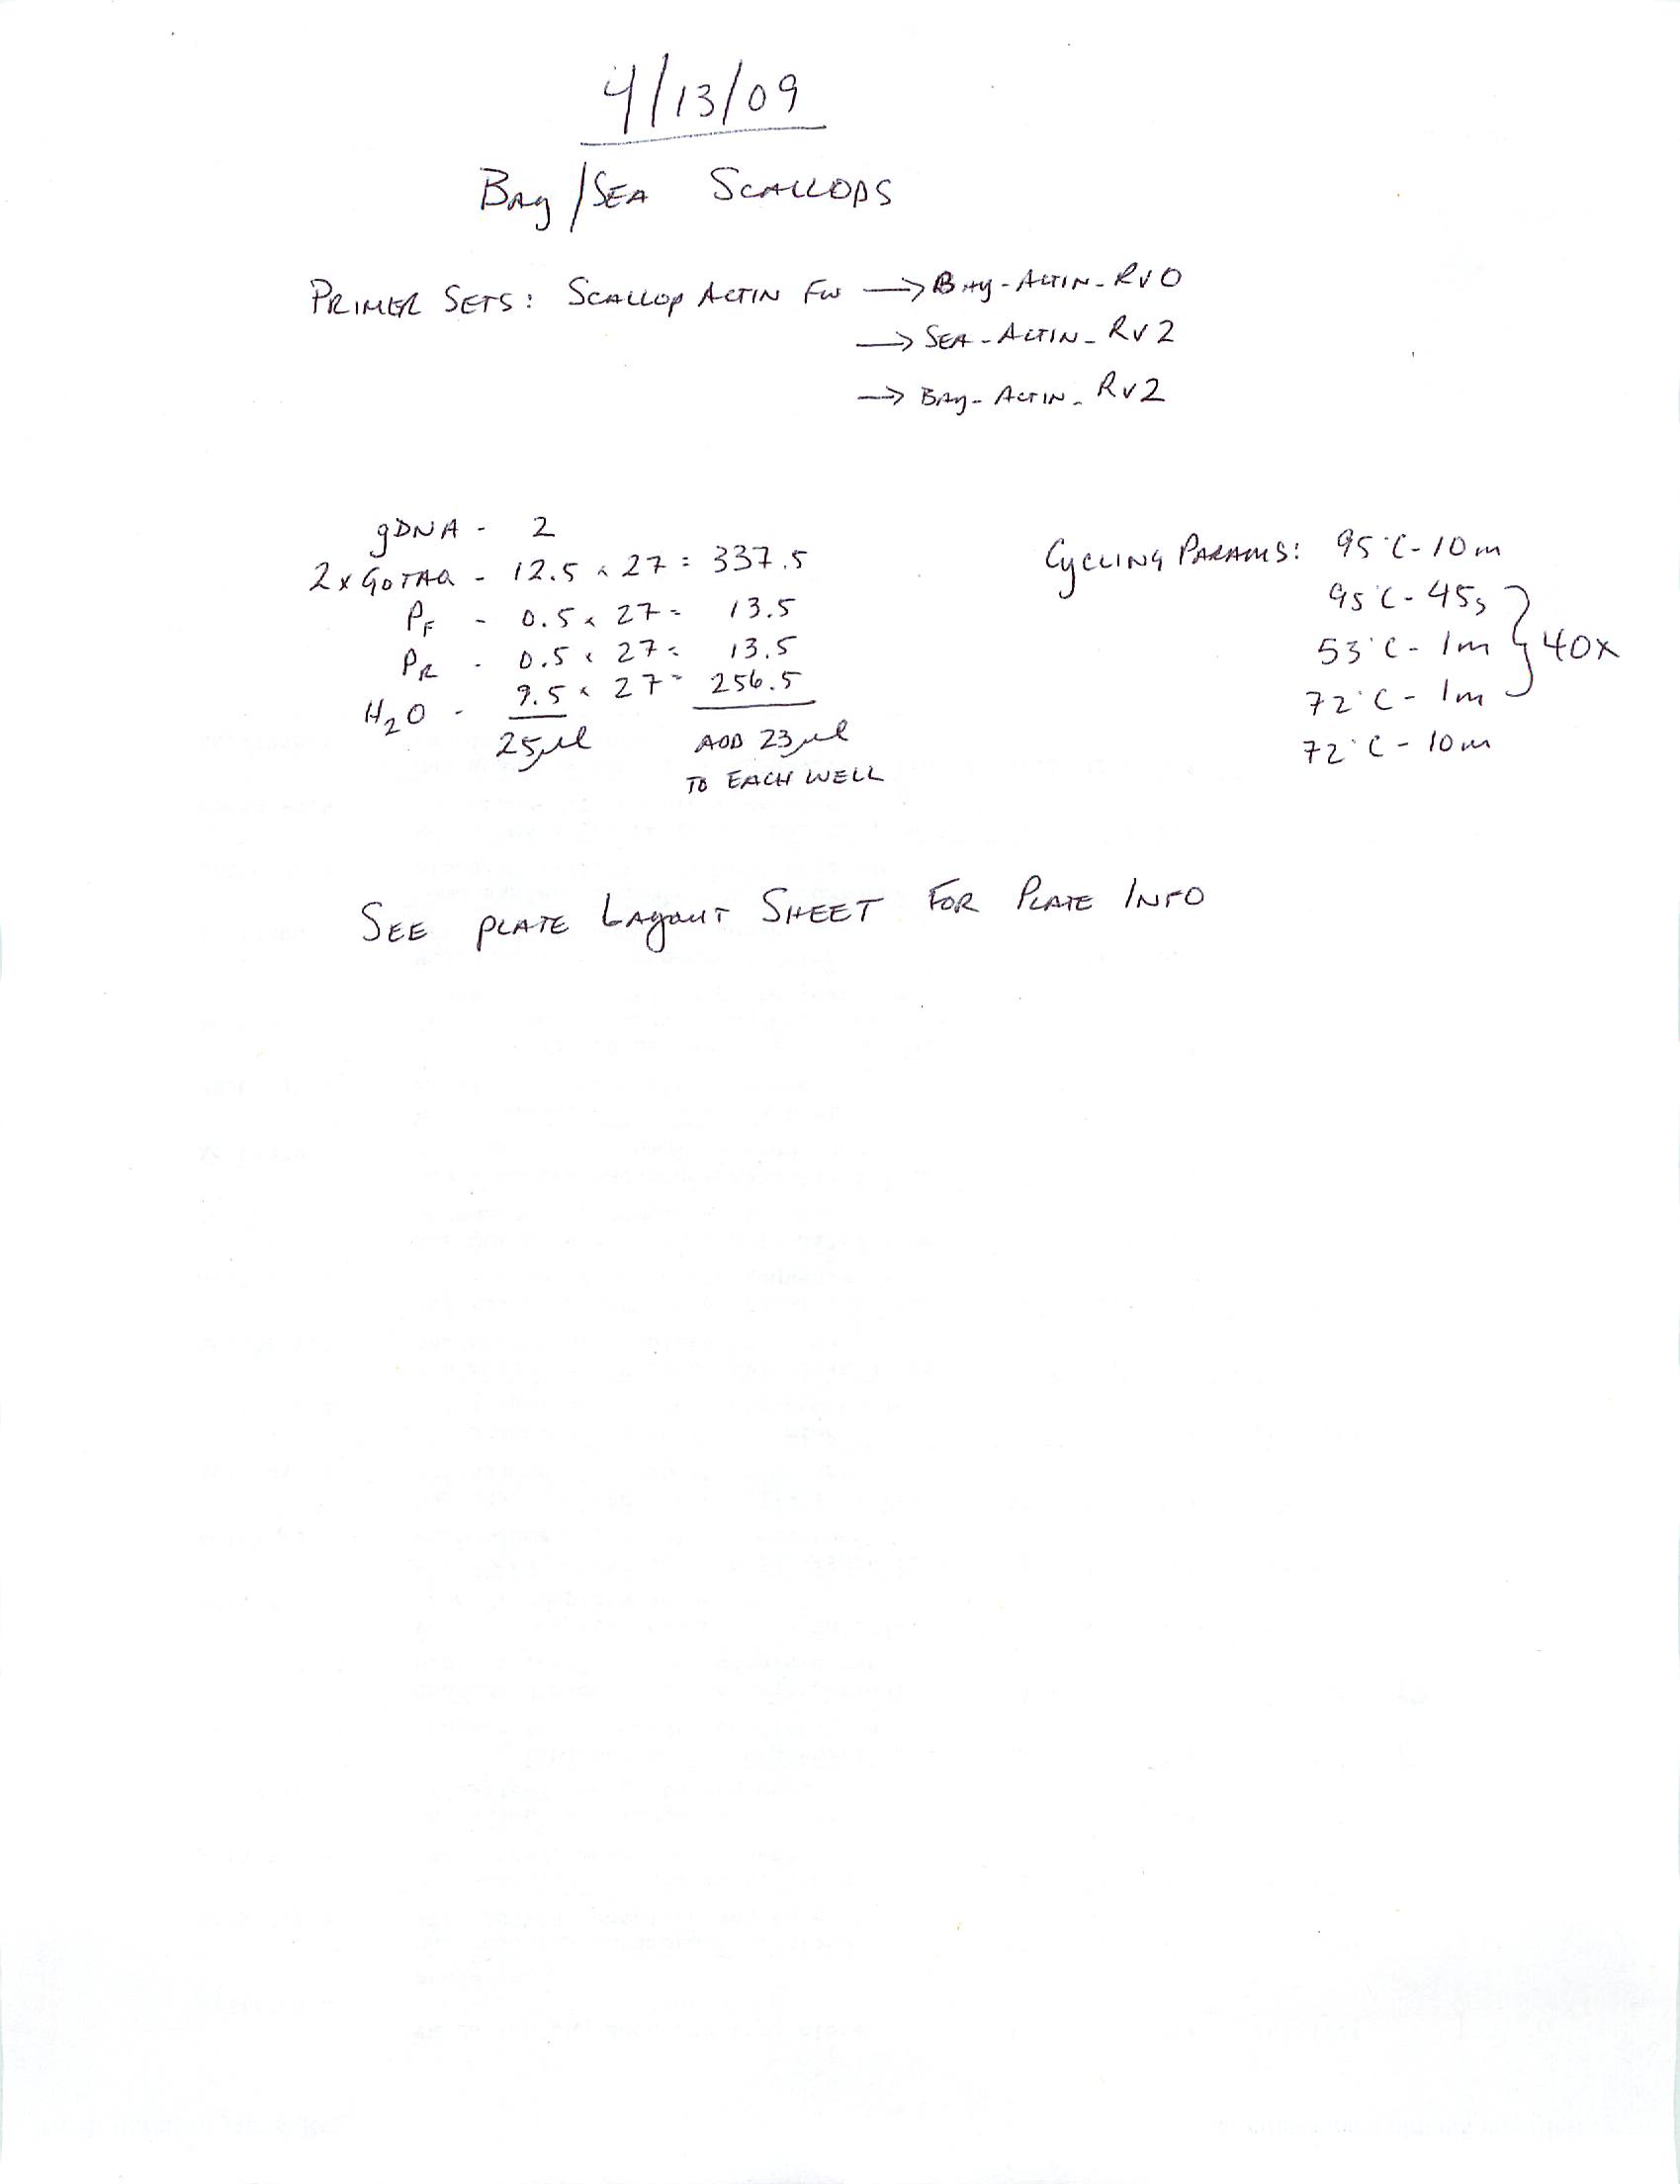 4/13/09
Bay/Sea Scallops
Primer Sets: Scallop Actin Fw → Bay-Actin-Rv0
→ Sea-Actin-Rv2
→ Bay-Actin-Rv2
gDNA - 2
2x GoTaq - 12.5 x 27 = 337.5
PF - 0.5 x 27 = 13.5
PR - 0.5 x 27 = 13.5
H2O - 9.5 x 27 = 256.5
25µl
Add 23µl
to each well
Cycling Params: 95°C - 10m
95°C - 45s
53°C - 1m } 40x
72°C - 1m
72°C - 10m
See plate Layout Sheet for Plate Info